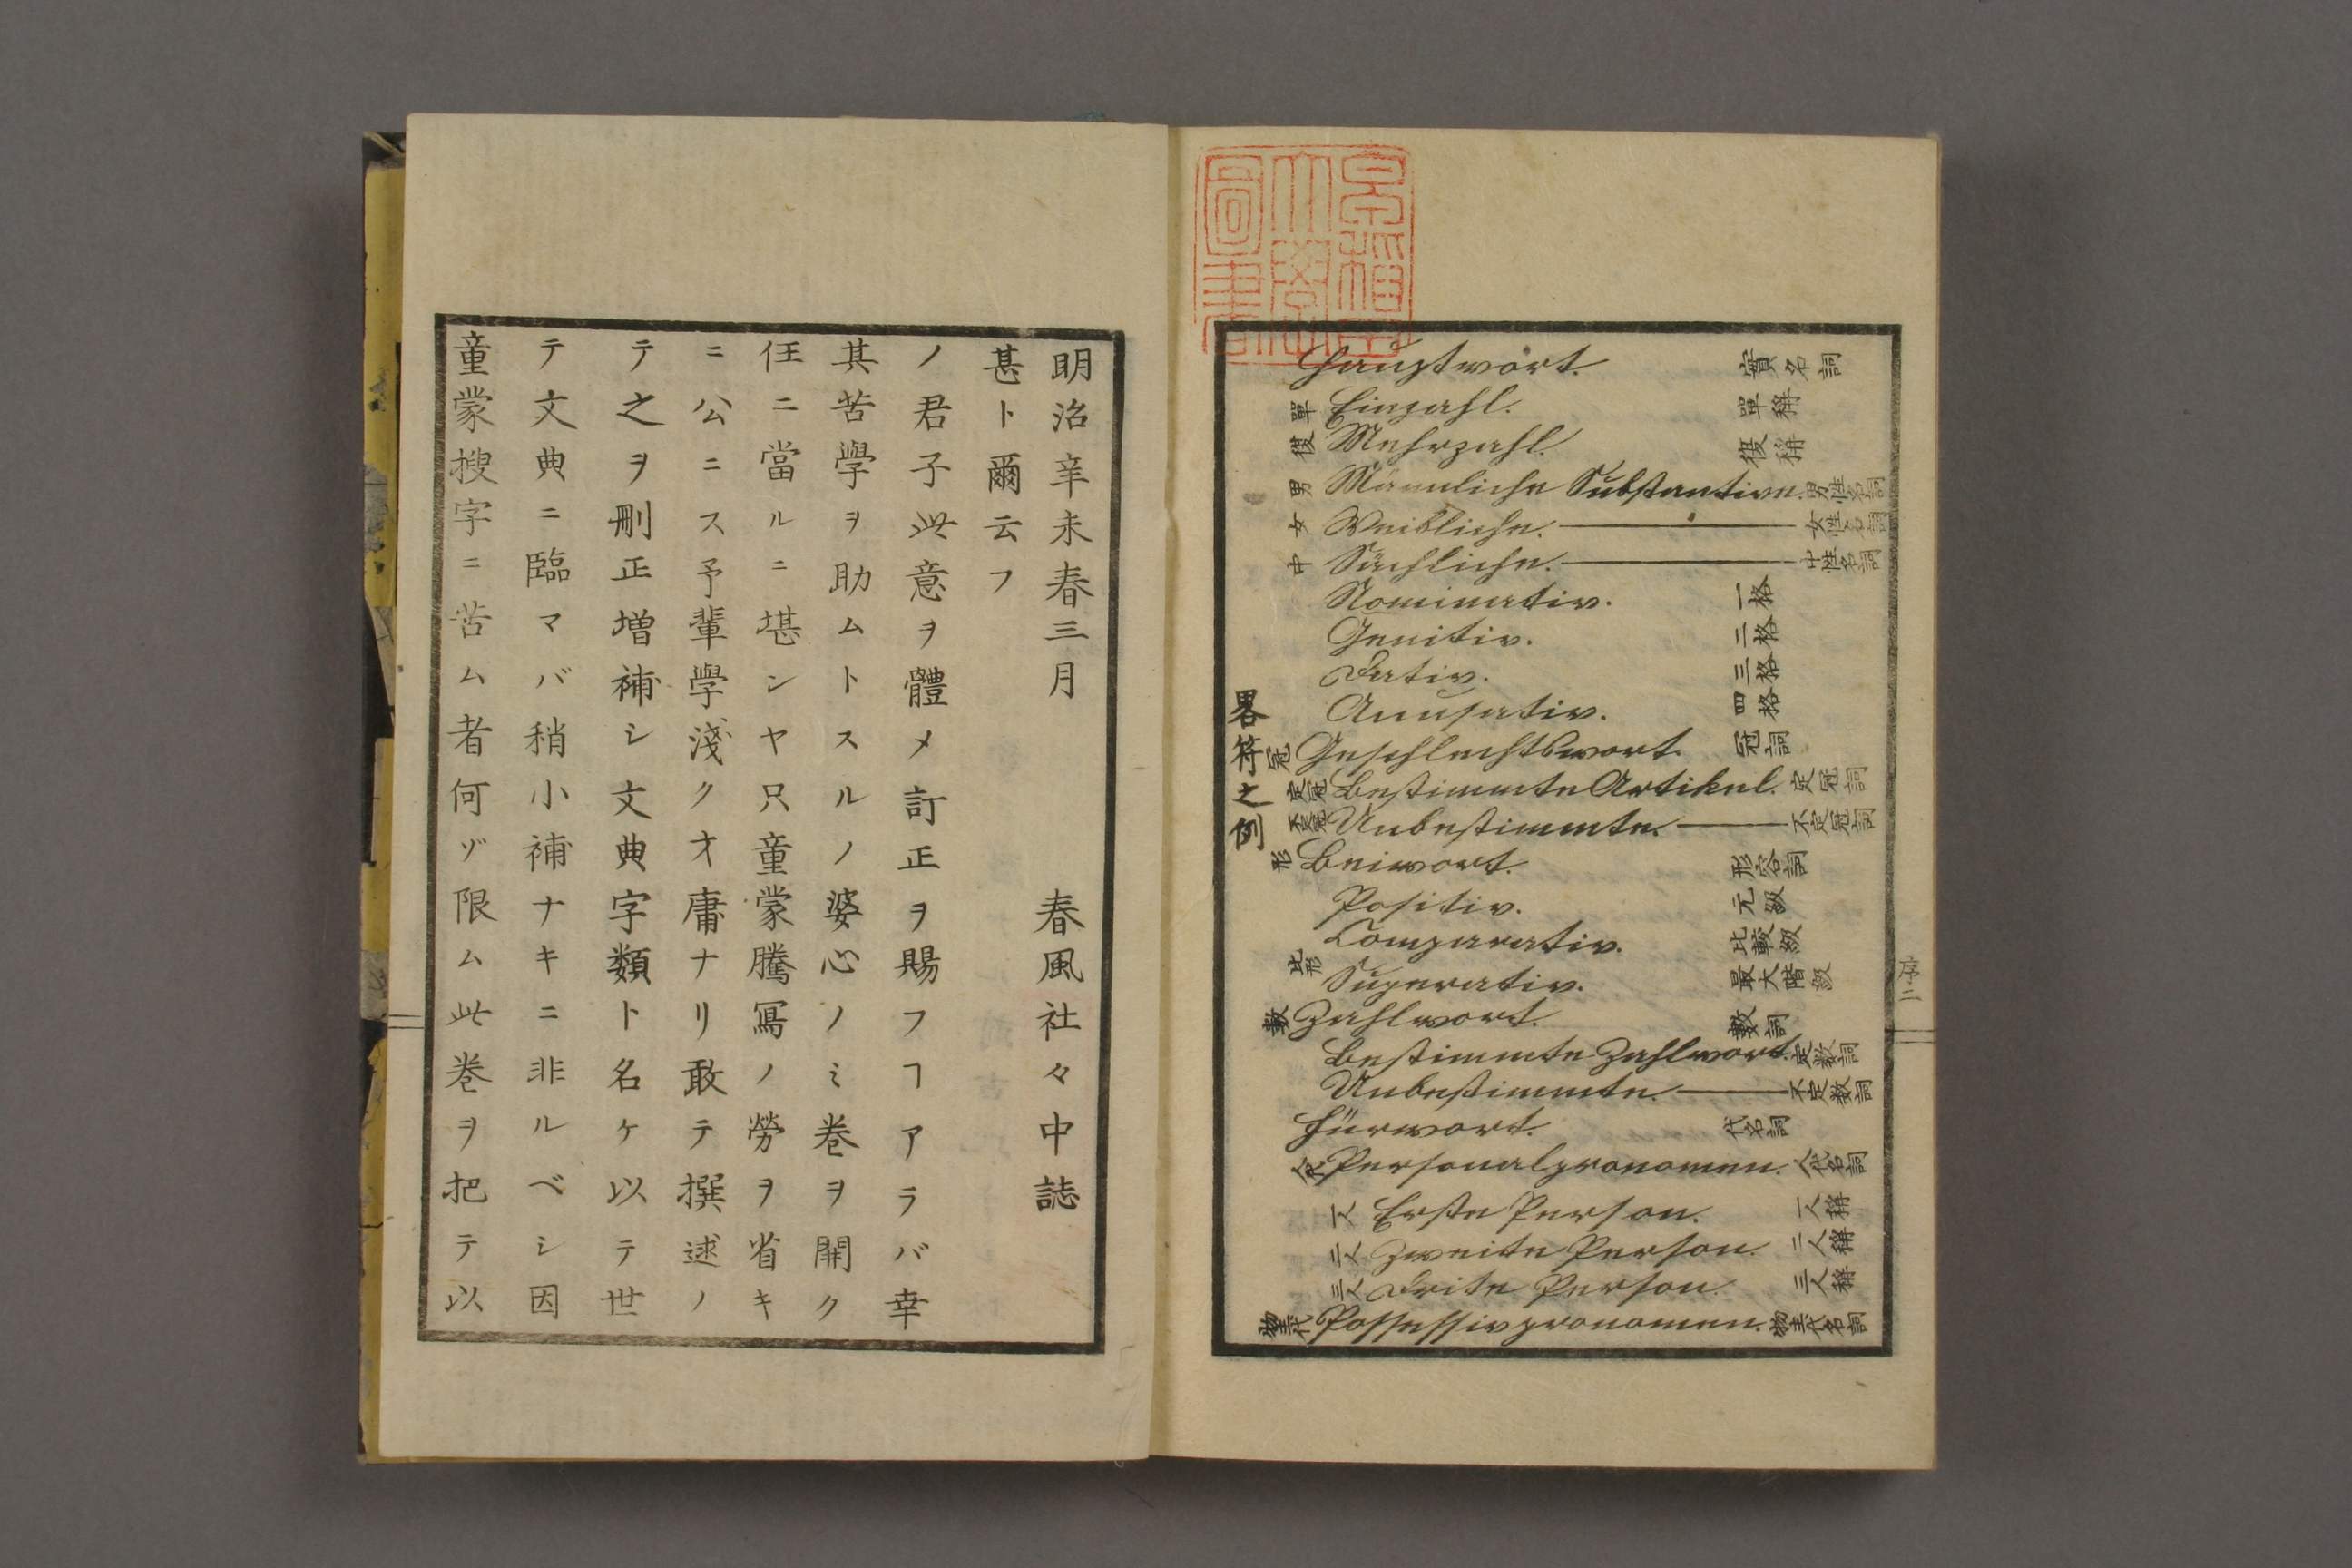 童蒙搜字ニ苦ム者何ゾ限ム此巻ヲ把テ以
テ文典ニ臨マバ稍小補ナキニ非ルベシ因
テ之ヲ刪正増補シ文典字類ト名ケ以テ世
ニ公ニス予輩學淺ク才庸ナリ敢テ撰述ノ
任ニ當ルニ堪ンヤ只童蒙騰寫ノ勞ヲ省キ
其苦學ヲ助ムトスルノ婆心ノミ巻ヲ開ク
ノ君子此意ヲ體メ訂正ヲ賜フヿアラバ幸
甚ト爾云フ
明治辛未春三月 春風社々中誌
畧符之例
Hauptwort. 實名詞
單 Einzahl. 單稱
復 Mehrzahl. 復稱
男 Männliche Substantive. 男性名詞
女 Weibliche. — 女性名詞
中 Sächliche. — 中性名詞
Nominativ. 一格
Genitiv. 二格
Dativ. 三格
Accusativ. 四格
冠 Geschlechtswort. 冠詞
定冠 Bestimmte Artikel. 定冠詞
不定冠 Unbestimmte. — 不定冠詞
形 Beiwort. 形容詞
Positiv. 元級
Comparativ. 比較級
比形 Superativ. 最大階級
數 Zahlwort. 數詞
Bestimmte Zahlwort. 定数詞
Unbestimmte. — 不定数詞
Fürwort. 代名詞
人代 Personalpronomen. 人代名詞
一人 Erste Person. 一人稱
二人 Zweite Person. 二人稱
三人 Drite Person. 三人稱
物主代 Possessivpronomen. 物主代名詞
序二
早稲田大學圖書